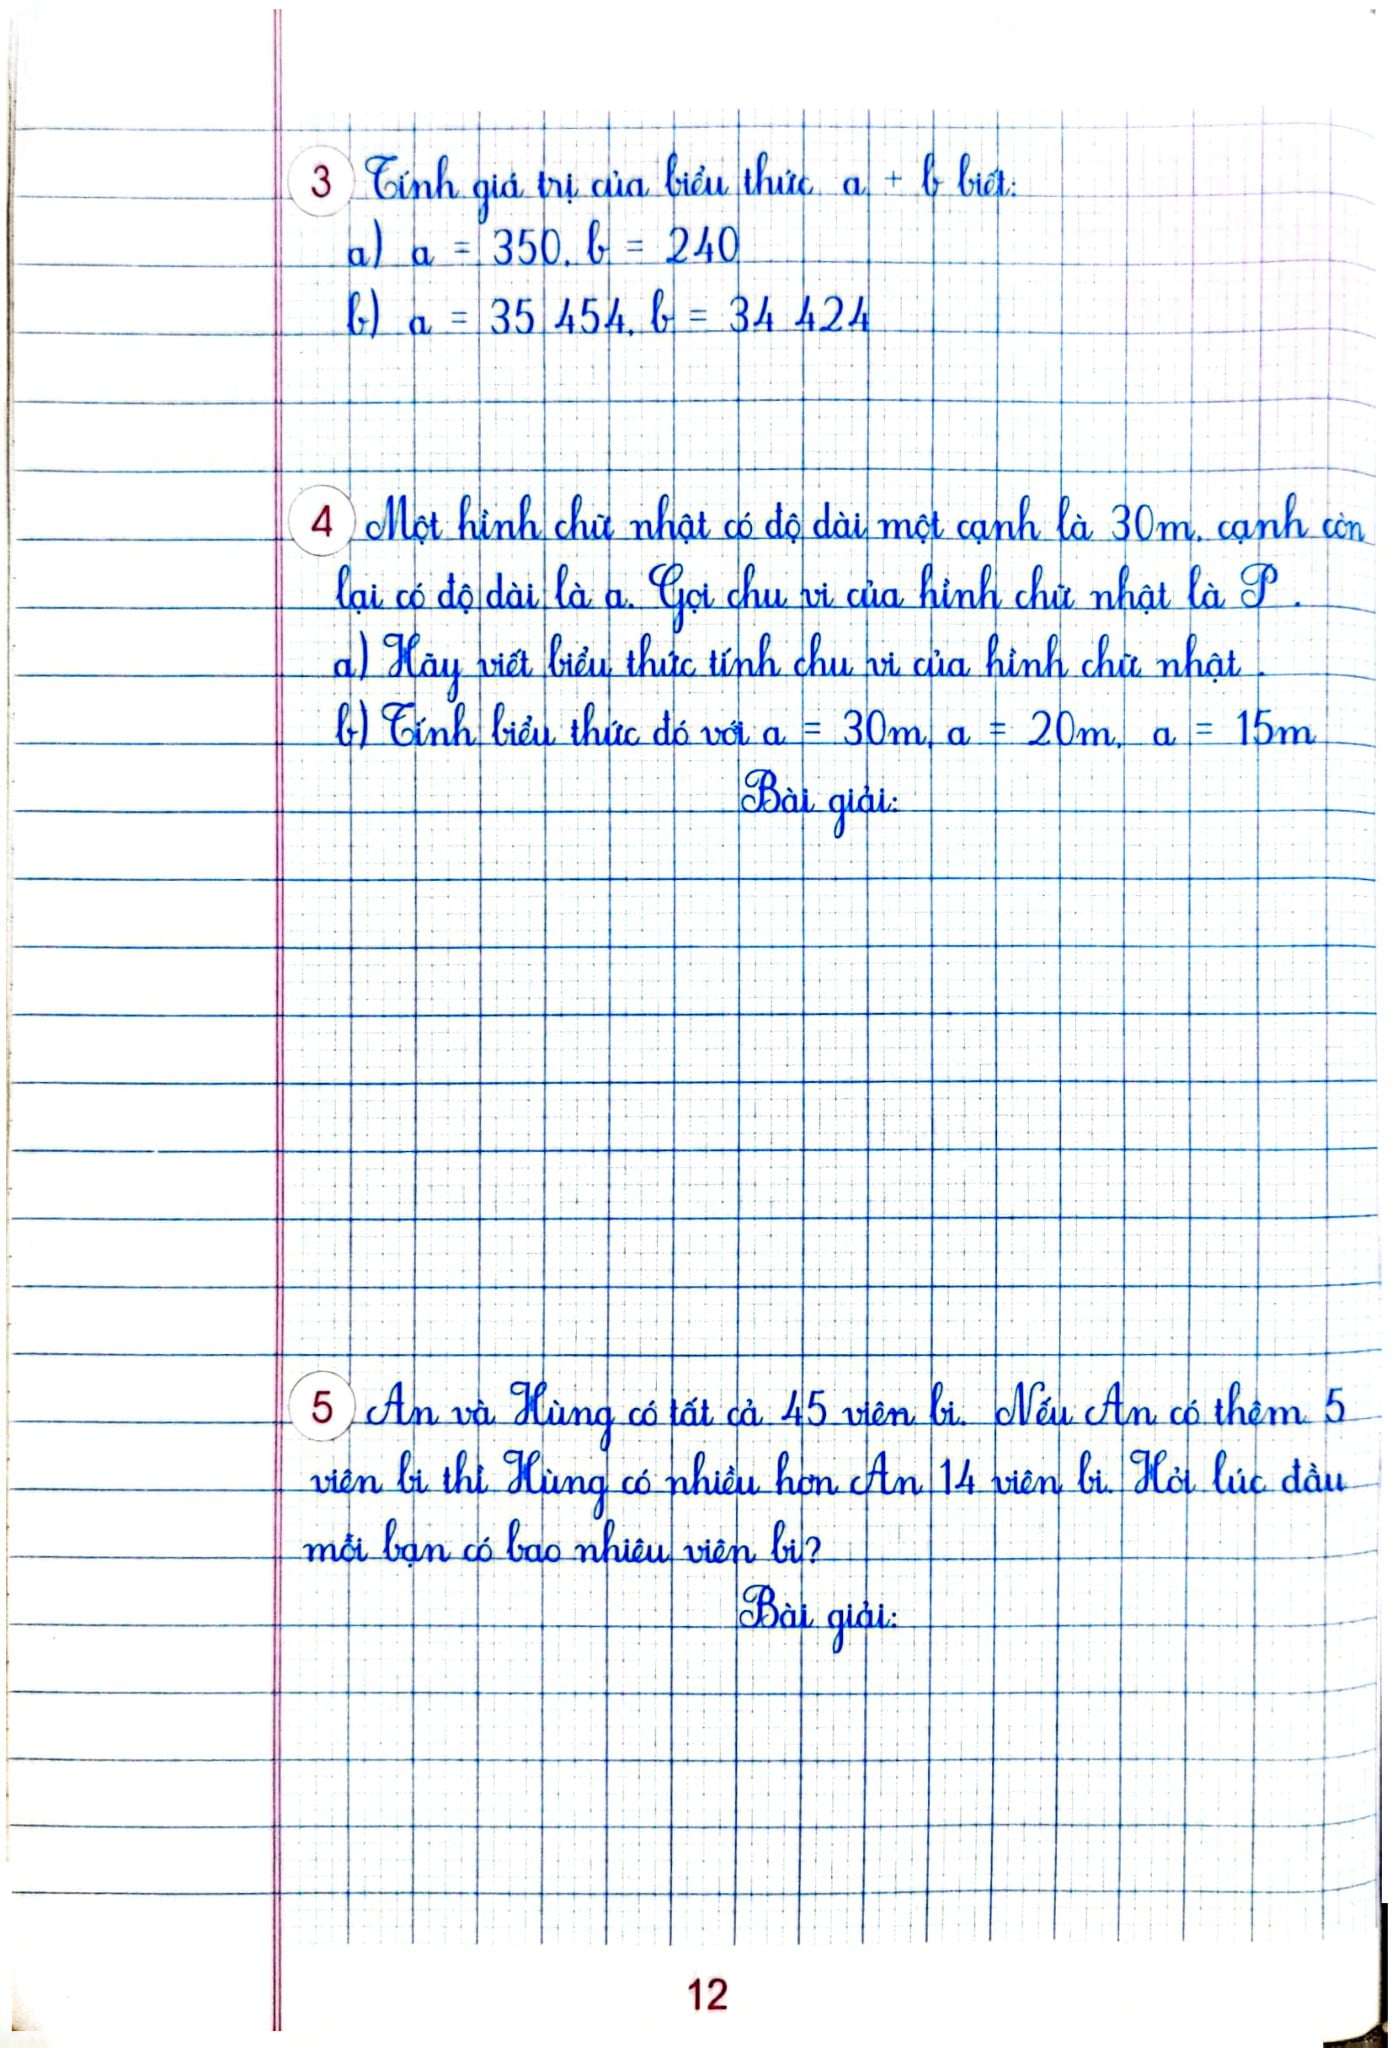 3 Tính giá trị của biểu thức a + b biết:
a) a = 350, b = 240
b) a = 35 454, b = 34 424
4 Một hình chữ nhật có độ dài một cạnh là 30m, cạnh còn
lại có độ dài là a. Gọi chu vi của hình chữ nhật là P.
a) Hãy viết biểu thức tính chu vi của hình chữ nhật.
b) Tính biểu thức đó với a = 30m, a = 20m, a = 15m
Bài giải:
5 An và Hùng có tất cả 45 viên bi. Nếu An có thêm 5
viên bi thì Hùng có nhiều hơn An 14 viên bi. Hỏi lúc đầu
mỗi bạn có bao nhiêu viên bi?
Bài giải:
12